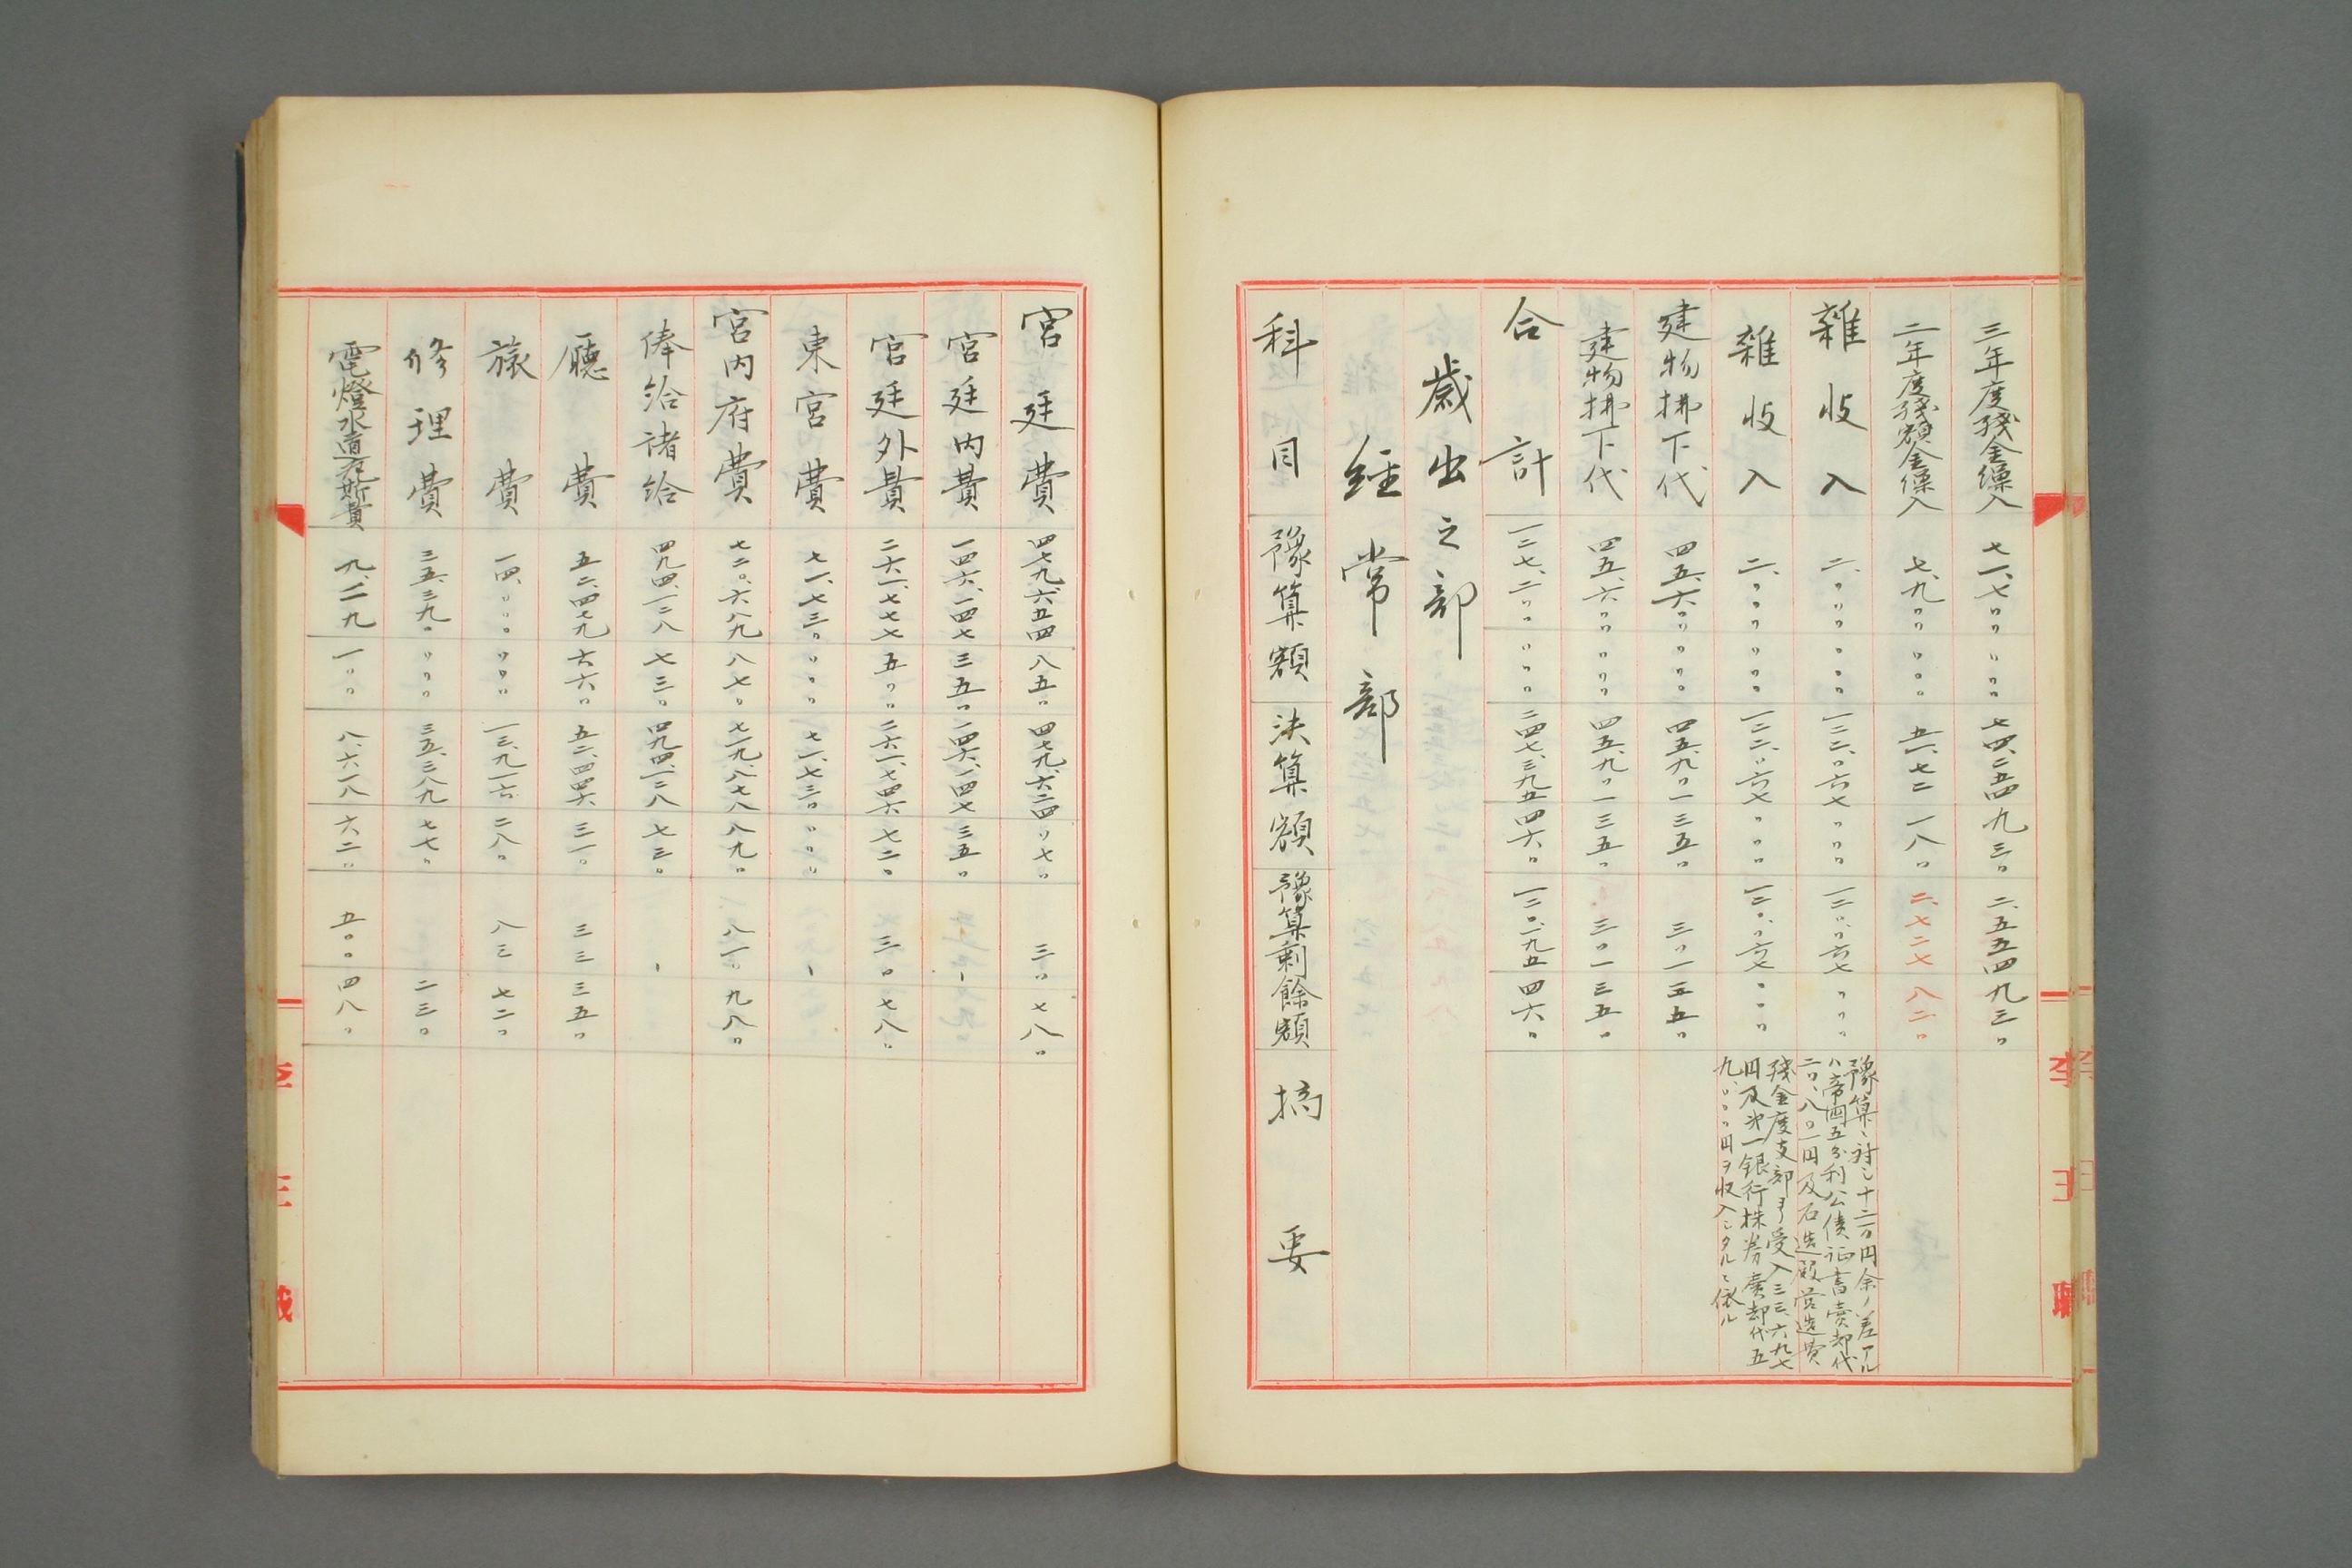 三年度殘金繰入 七一、七〃〃 〃〃〃 七四、二五四 九三〃 二、五五四 九三〃
二年度殘額金繰入 七、九〃〃 〃〃〃 五、一七二 一八〃 二、七二七 八二〃
雜收入 二、〃〃〃 〃〃〃 一二二、〃六七 〃〃〃 一二〃、〃六七 〃〃〃
豫算ニ対シ十二万円余ノ差アル
ハ帝国五分利公債証書賣却代
二〇、八〇一円及石造殿営造費
殘金度支部ヨリ受入三三、六九七
円及第一銀行株券賣却代五
九、〃〃〃円ヲ収入シタルニ依ル
雜收入 二、〃〃〃 〃〃〃 一二二、〃六七 〃〃〃 一二〃、〃六七 〃〃〃
建物拂下代 四五、六〃〃 〃〃〃 四五、九〃一 三五〃 三〃一 三五〃
建物拂下代 四五、六〃〃 〃〃〃 四五、九〃一 三五〃 三〃一 三五〃
合計 一二七、二〃〃 〃〃〃 二四七、三九五 四六〃 一二〇、一九五 四六〃
歳出之部
經常部
科目 豫算額 決算額 豫算剰餘額 摘要
宮廷費 四七九、六五四 八五〃 四七九、六二四 〃七〃 三〃 七八〃
宮廷內費 一四六、一四七 三五〃 一四六、一四七 三五〃 、
宮廷外費 二六一、七七七 五〃〃 二六一、七四六 七二〃 三〃 七八〃
東宮費 七一、七三〃 〃〃〃 七一、七三〃 〃〃〃 、
宮內府費 七二〇、六八九 八七〃 七一九、八七八 八九〃 八一〃 九八〃
俸給諸給 四九四、一二八 七三〃 四九四、一二八 七三〃 、
廳費 五二、四七九 六六〃 五二、四四六 三一〃 三三 三五〃
旅費 一四、〃〃〃 〃〃〃 一三、九一六 二八〃 八三 七二〃
修理費 三五、三九〃 〃〃〃 三五、三八九 七七〃 二三〃
電燈水道瓦斯費 九、一一九 一〃〃 八、六一八 六二〃 五〃〃 四八〃
李王職
李王職